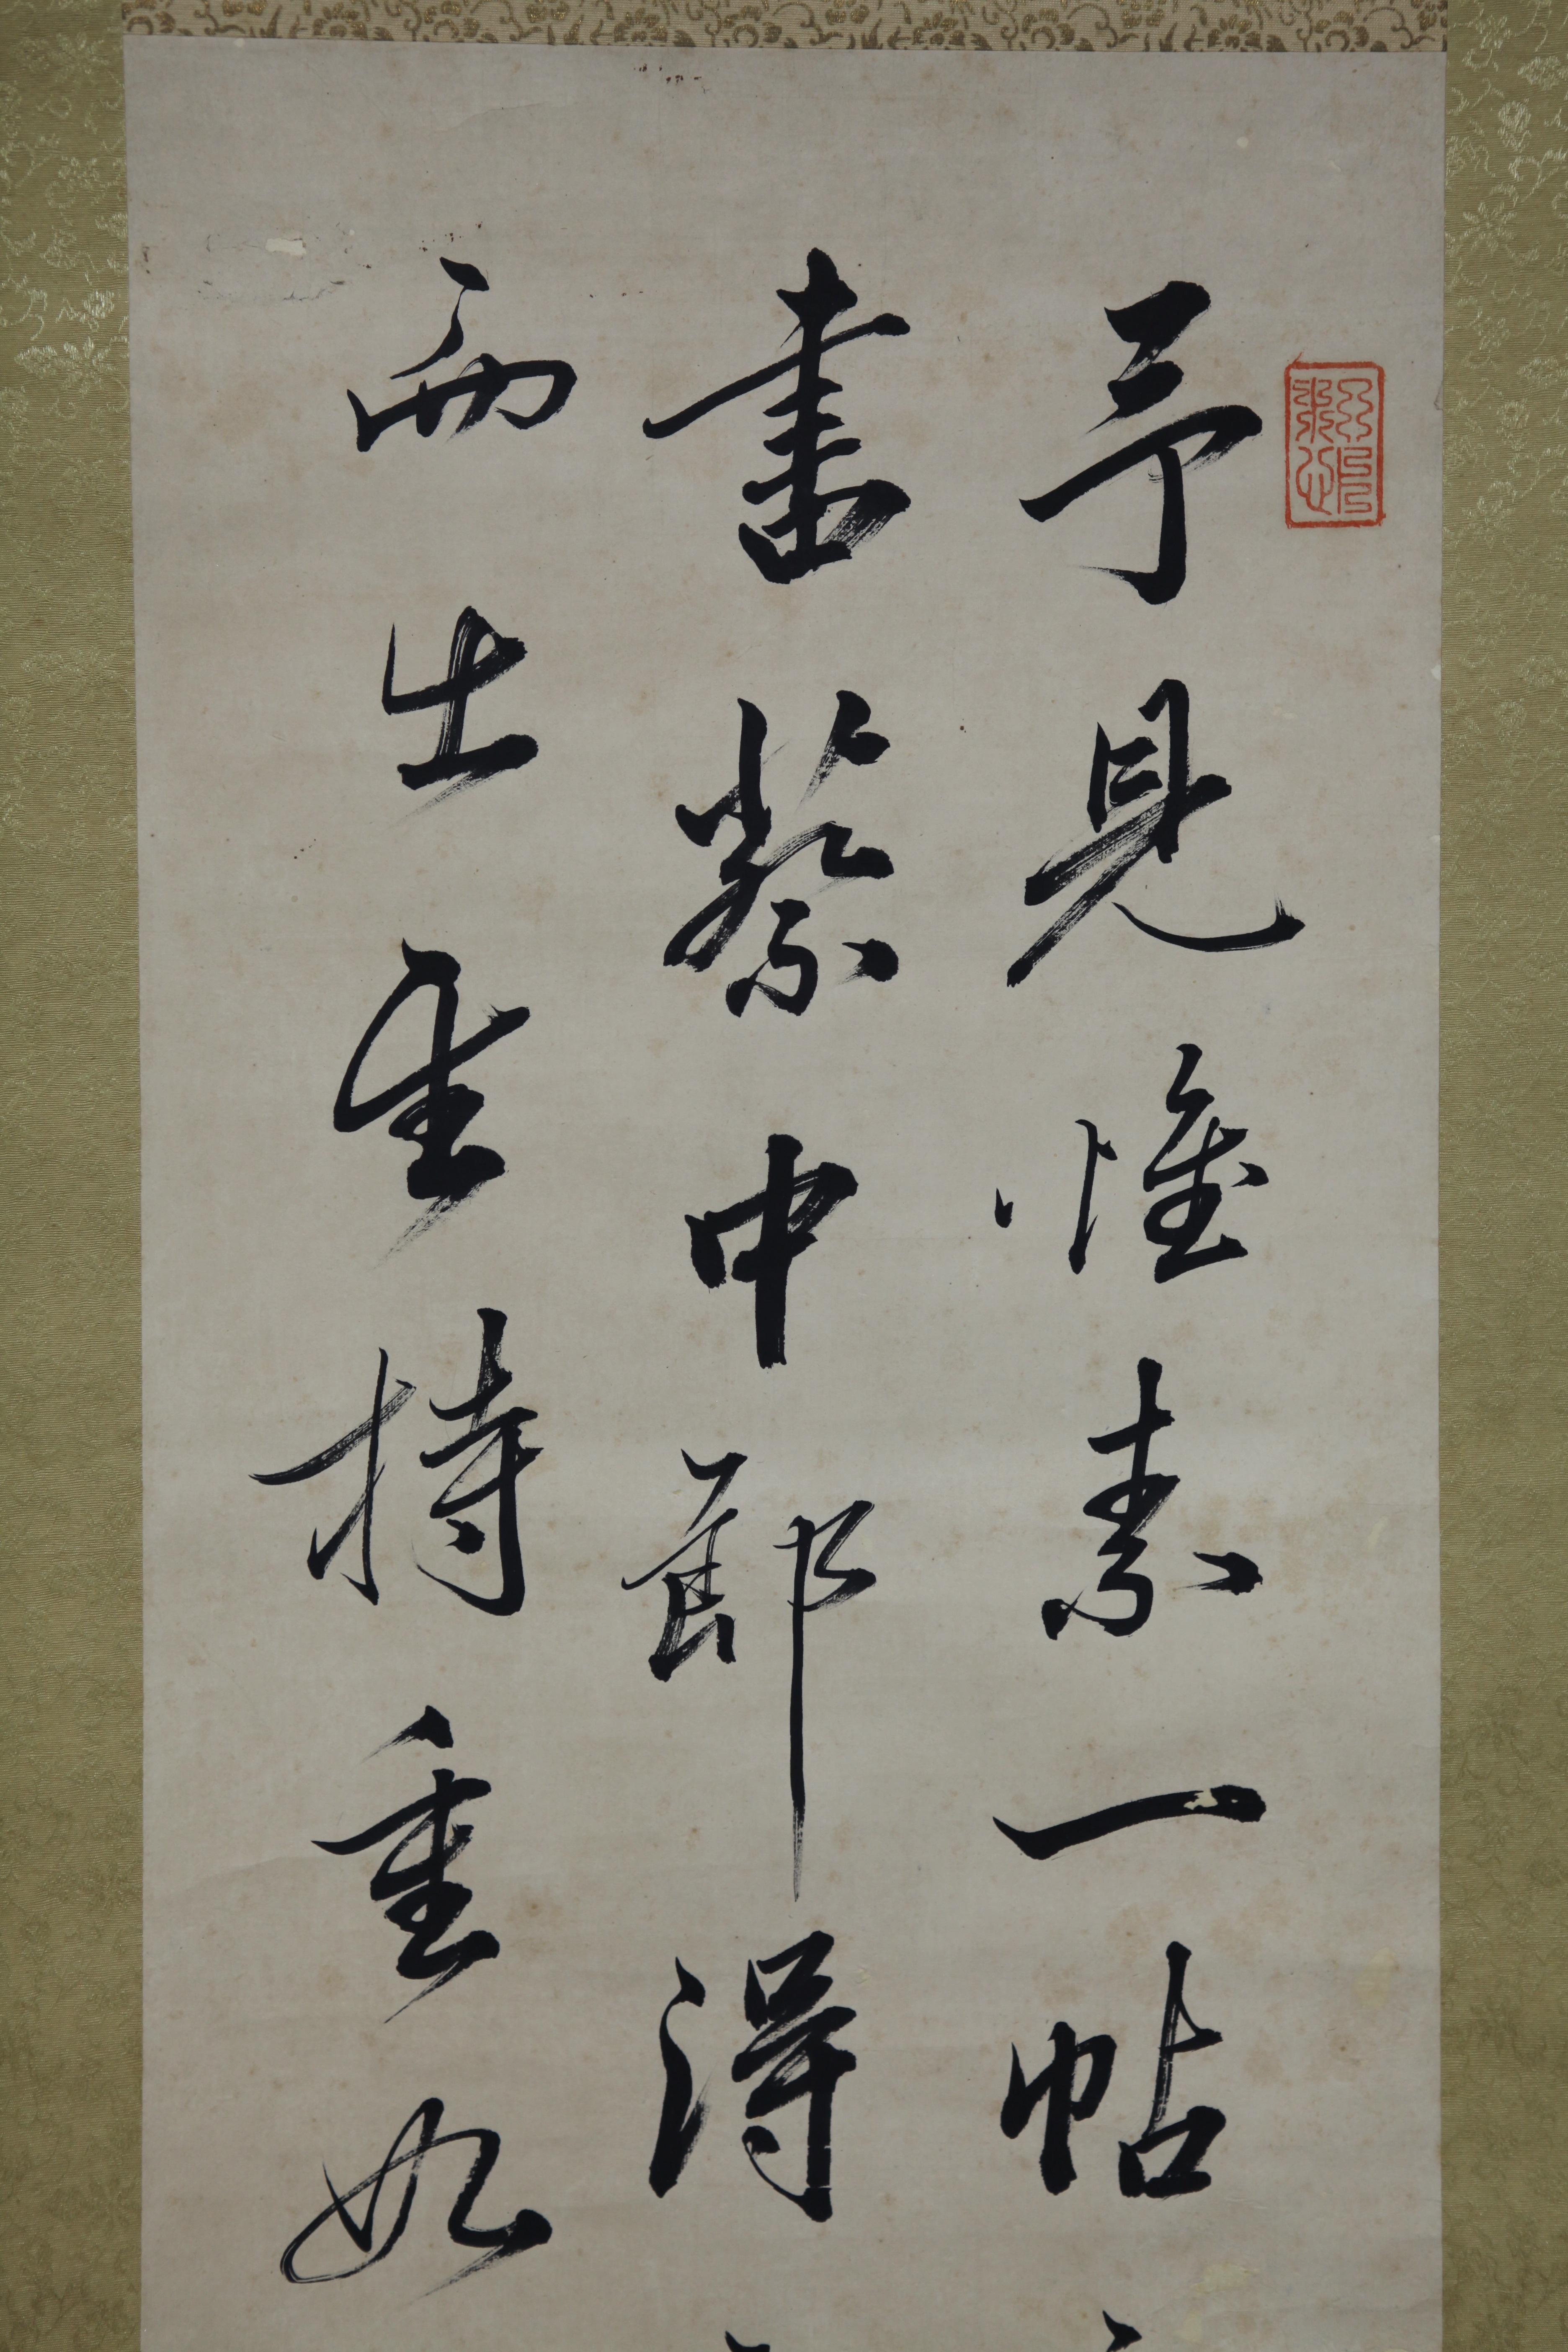 予見惟素一帖
書蔡中郎得
而出持重如